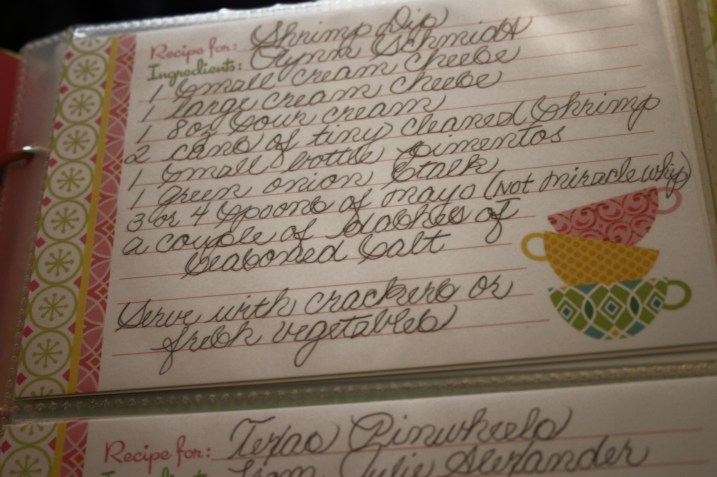 Recipe for: Shrimp Dip
Ingredients: Lynn Schmidt
1 small cream cheese
1 large cream cheese
1 8oz sour cream
2 cans of tiny cleaned shrimp
1 small bottle pimentos
1 green onion stalk
3 or 4 spoons of mayo (not miracle whip)
a couple of dashes of
seasoned salt
Serve with crackers or
fresh vegetables
Recipe for: Texas Pinwheels
from Julie Alexander